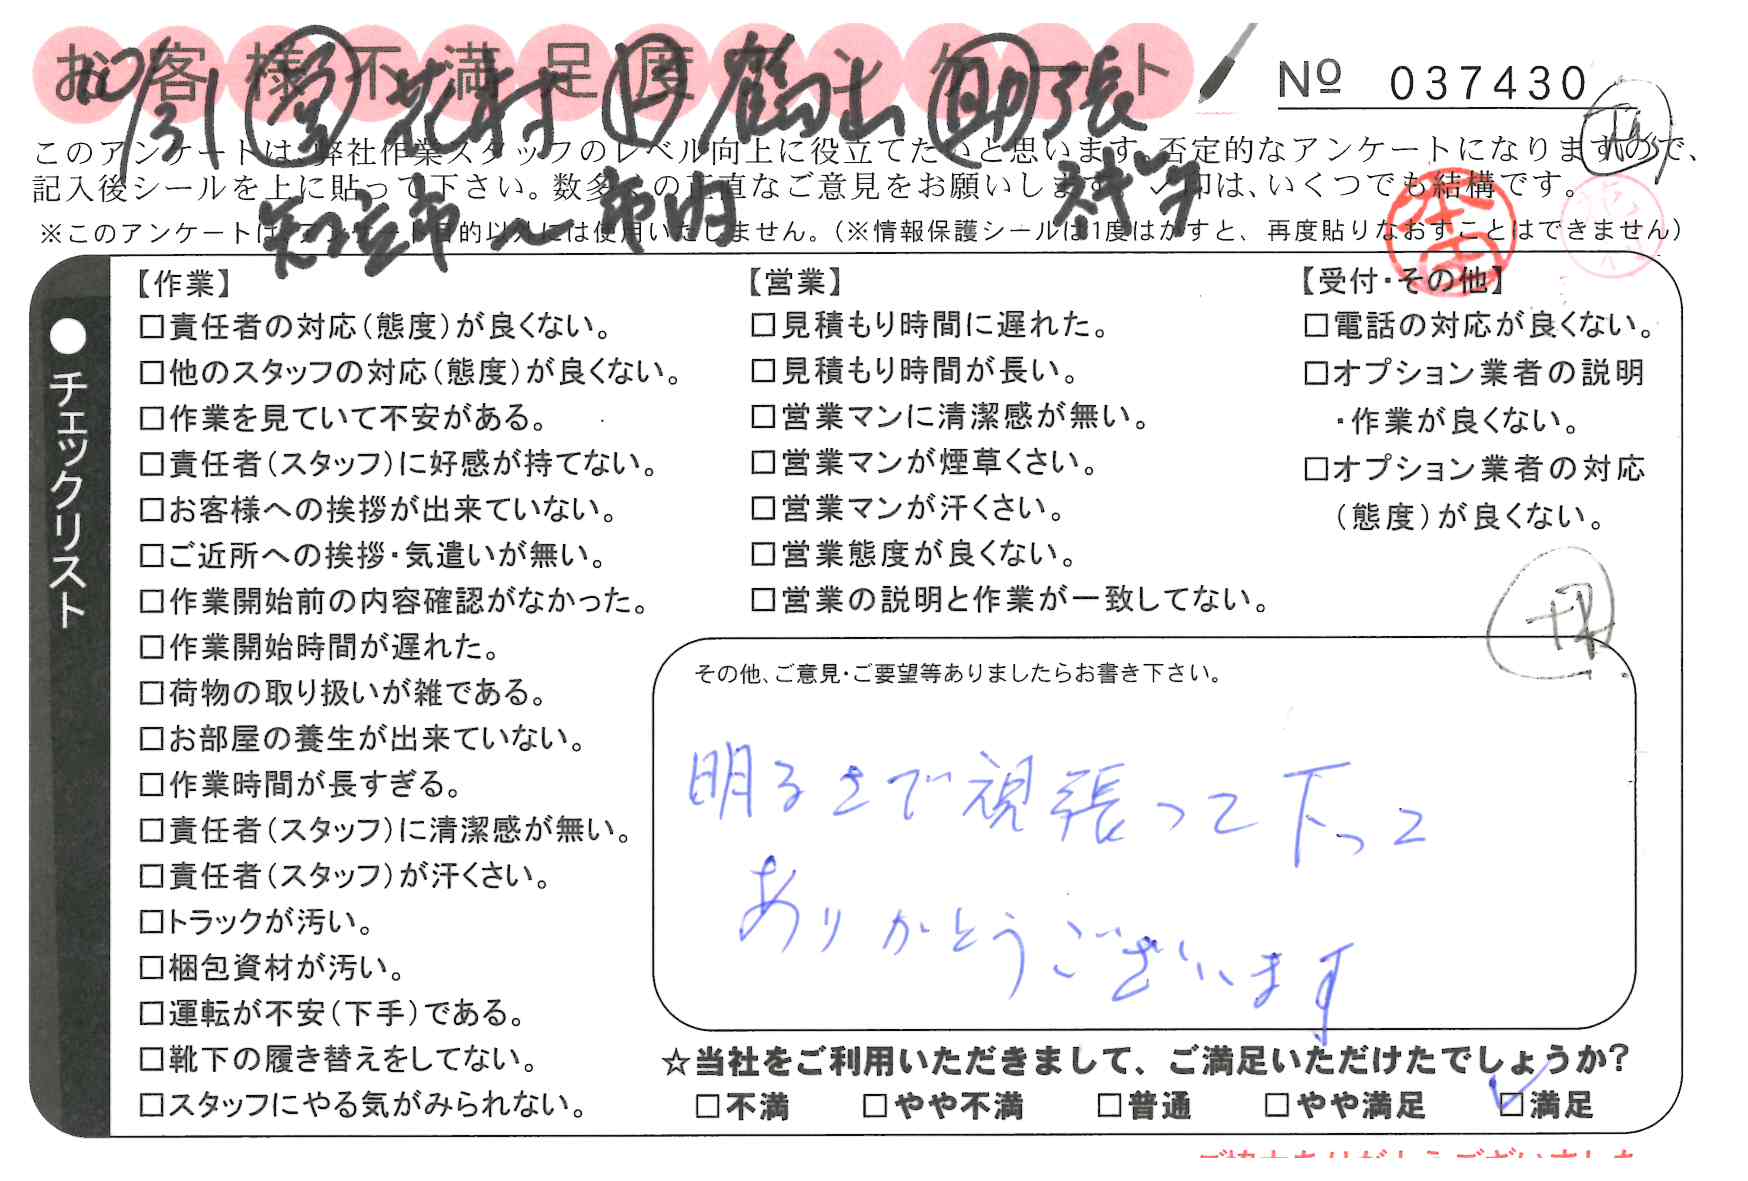 お客様不満足度アンケート
№ 037430
10/31 営 花村 ト 鶴山 助 張
このアンケートは、弊社作業スタッフのレベル向上に役立てたいと思います。否定的なアンケートになりますので、
記入後シールを上に貼って下さい。数多くの正直なご意見をお願いします。✓印は、いくつでも結構です。
知立市〜市内
※このアンケートは、アンケート目的以外には使用いたしません。(※情報保護シールは1度はがすと、再度貼りなおすことはできません)
●チェックリスト
【作業】
□責任者の対応(態度)が良くない。
□他のスタッフの対応(態度)が良くない。
□作業を見ていて不安がある。
□責任者(スタッフ)に好感が持てない。
□お客様への挨拶が出来ていない。
□ご近所への挨拶・気遣いが無い。
□作業開始前の内容確認がなかった。
□作業開始時間が遅れた。
□荷物の取り扱いが雑である。
□お部屋の養生が出来ていない。
□作業時間が長すぎる。
□責任者(スタッフ)に清潔感が無い。
□責任者(スタッフ)が汗くさい。
□トラックが汚い。
□梱包資材が汚い。
□運転が不安(下手)である。
□靴下の履き替えをしてない。
□スタッフにやる気がみられない。
【営業】
□見積もり時間に遅れた。
□見積もり時間が長い。
□営業マンに清潔感が無い。
□営業マンが煙草くさい。
□営業マンが汗くさい。
□営業態度が良くない。
□営業の説明と作業が一致してない。
【受付・その他】
□電話の対応が良くない。
□オプション業者の説明
・作業が良くない。
□オプション業者の対応
(態度)が良くない。
その他、ご意見・ご要望等ありましたらお書き下さい。
明るさで頑張って下って
ありがとうございます
☆当社をご利用いただきまして、ご満足いただけたでしょうか?
□不満 □やや不満 □普通 □やや満足 ☑満足